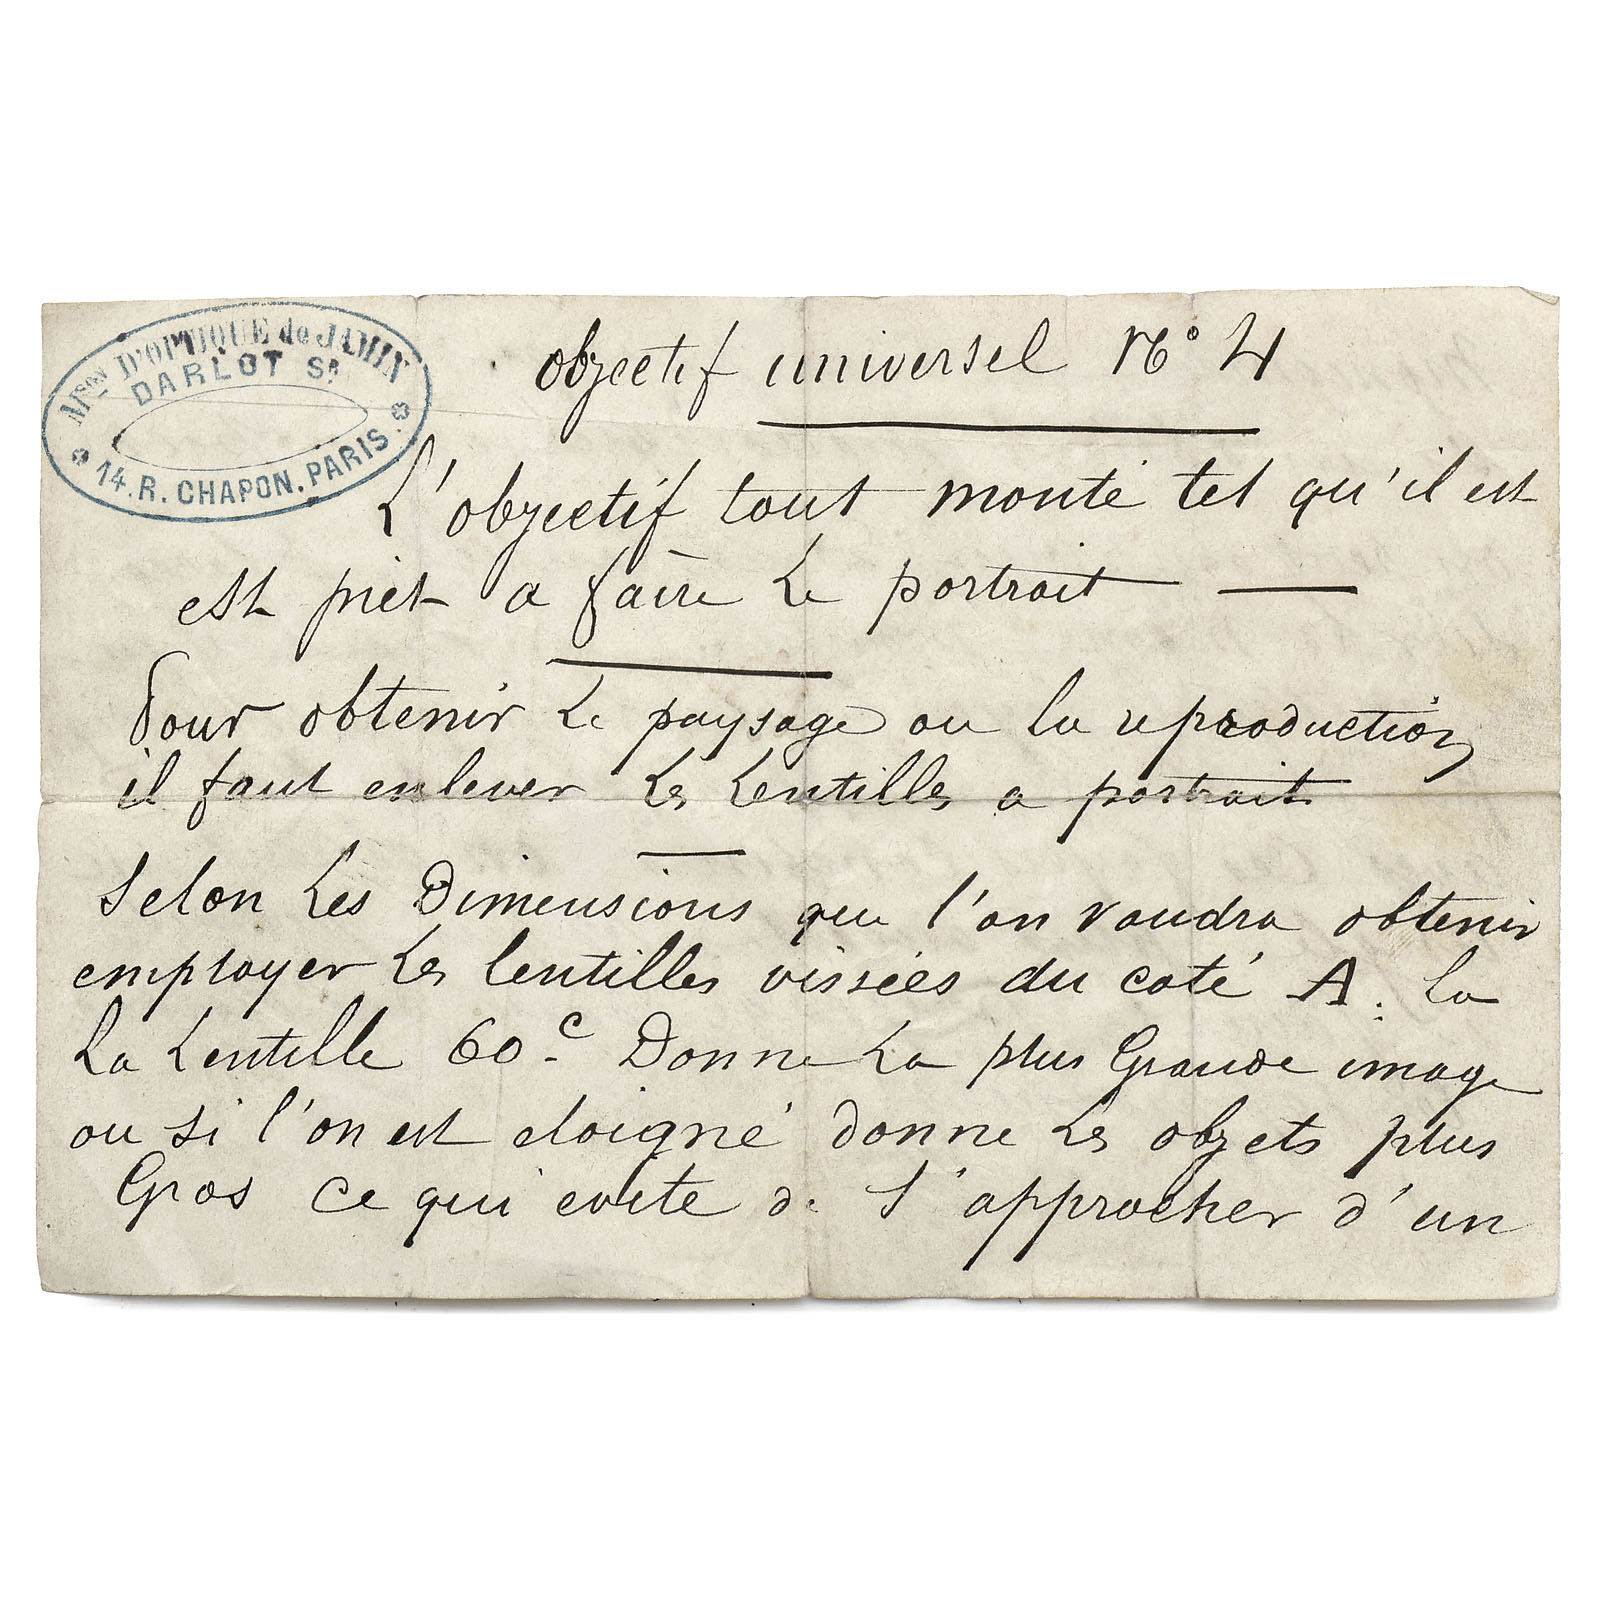 Mson D'OPTIQUE de JAMIN
DARLOT Sr
14. R. CHAPON. PARIS.
objectif universel No 4
L'objectif tout monté tel qu'il est
est prêt a faire le portrait —
Pour obtenir le paysage ou la reproduction
il faut enlever les lentilles a portrait
Selon les Dimensions que l'on voudra obtenir
employer les lentilles vissées du coté A. la
La Lentille 60c Donne La plus Grande image
ou si l'on est eloigné donne les objets plus
Gros ce qui evite de s'approcher d'un